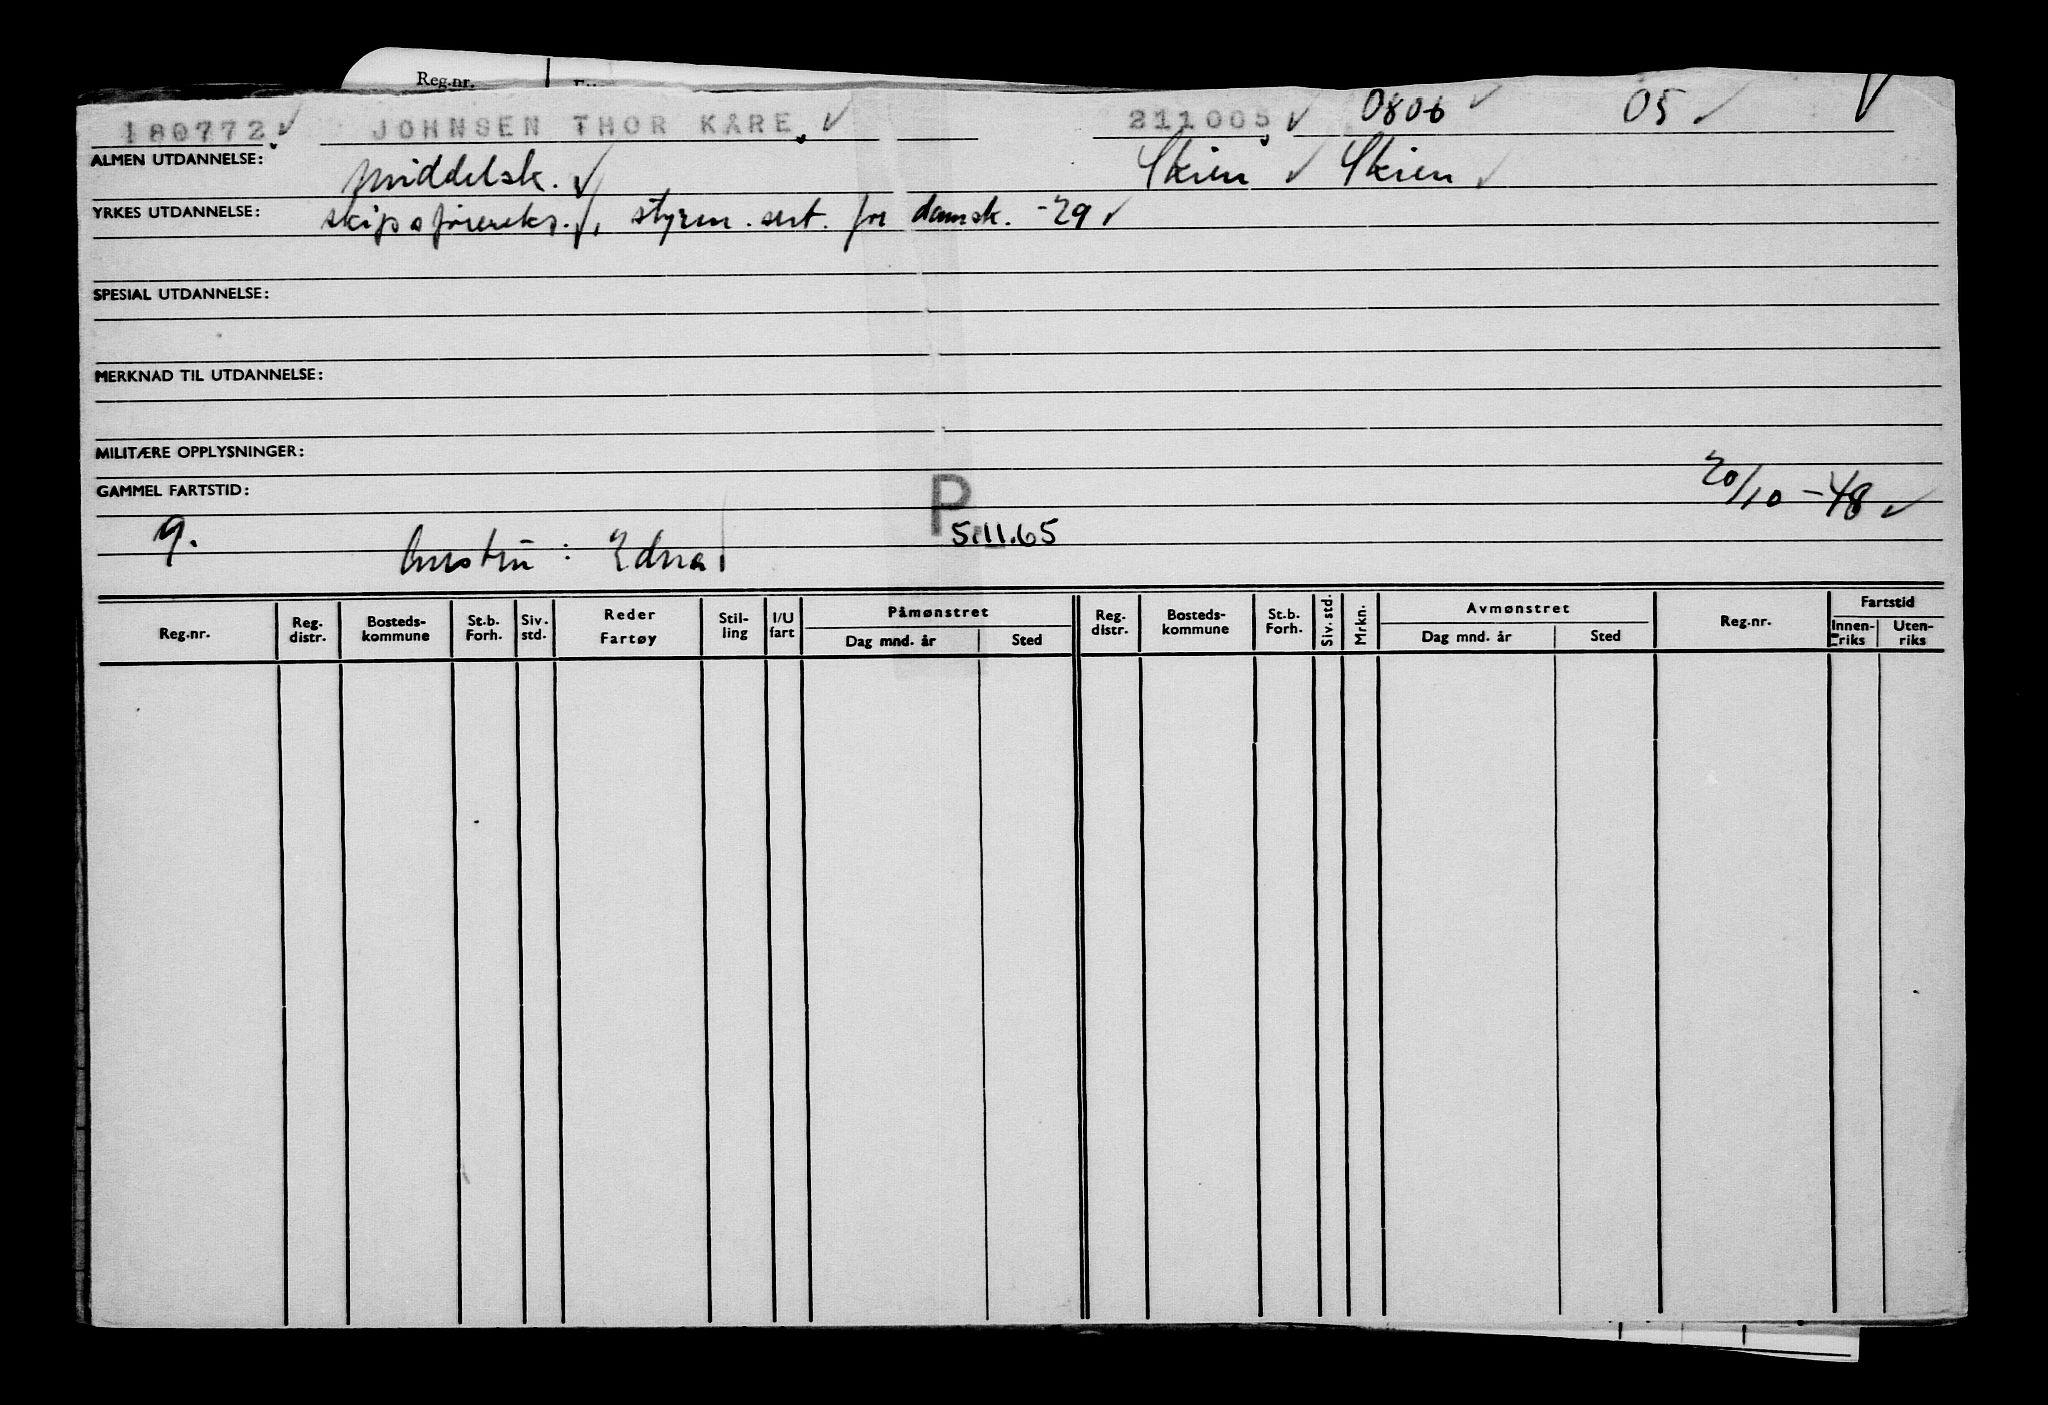 Reg.nr.
180772 JOHNSEN THOR KÅRE 211005 0806 05
ALMEN UTDANNELSE: Middelsk. Skien Skien
YRKES UTDANNELSE: skipsførereks., styrm. sert. fra dansk. -29
SPESIAL UTDANNELSE:
MERKNAD TIL UTDANNELSE:
MILITÆRE OPPLYSNINGER:
GAMMEL FARTSTID: P 20/10-48
5.11.65
g. hustru: Edna
Reg.nr. Reg. distr. Bosteds-kommune St.b. Forh. Siv. std. Reder Fartøy Stil-ling I/U fart Påmønstret Dag mnd. år Sted Reg. distr. Bosteds-kommune St.b. Forh. Siv. std. Mrkn. Avmønstret Dag mnd. år Sted Reg.nr. Fartstid Innen-riks Uten-riks